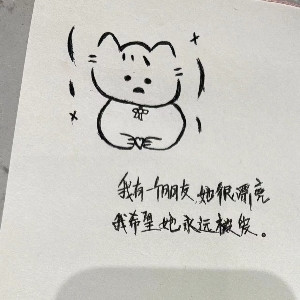 我有一个朋友,她很漂亮
我希望她永远被爱。